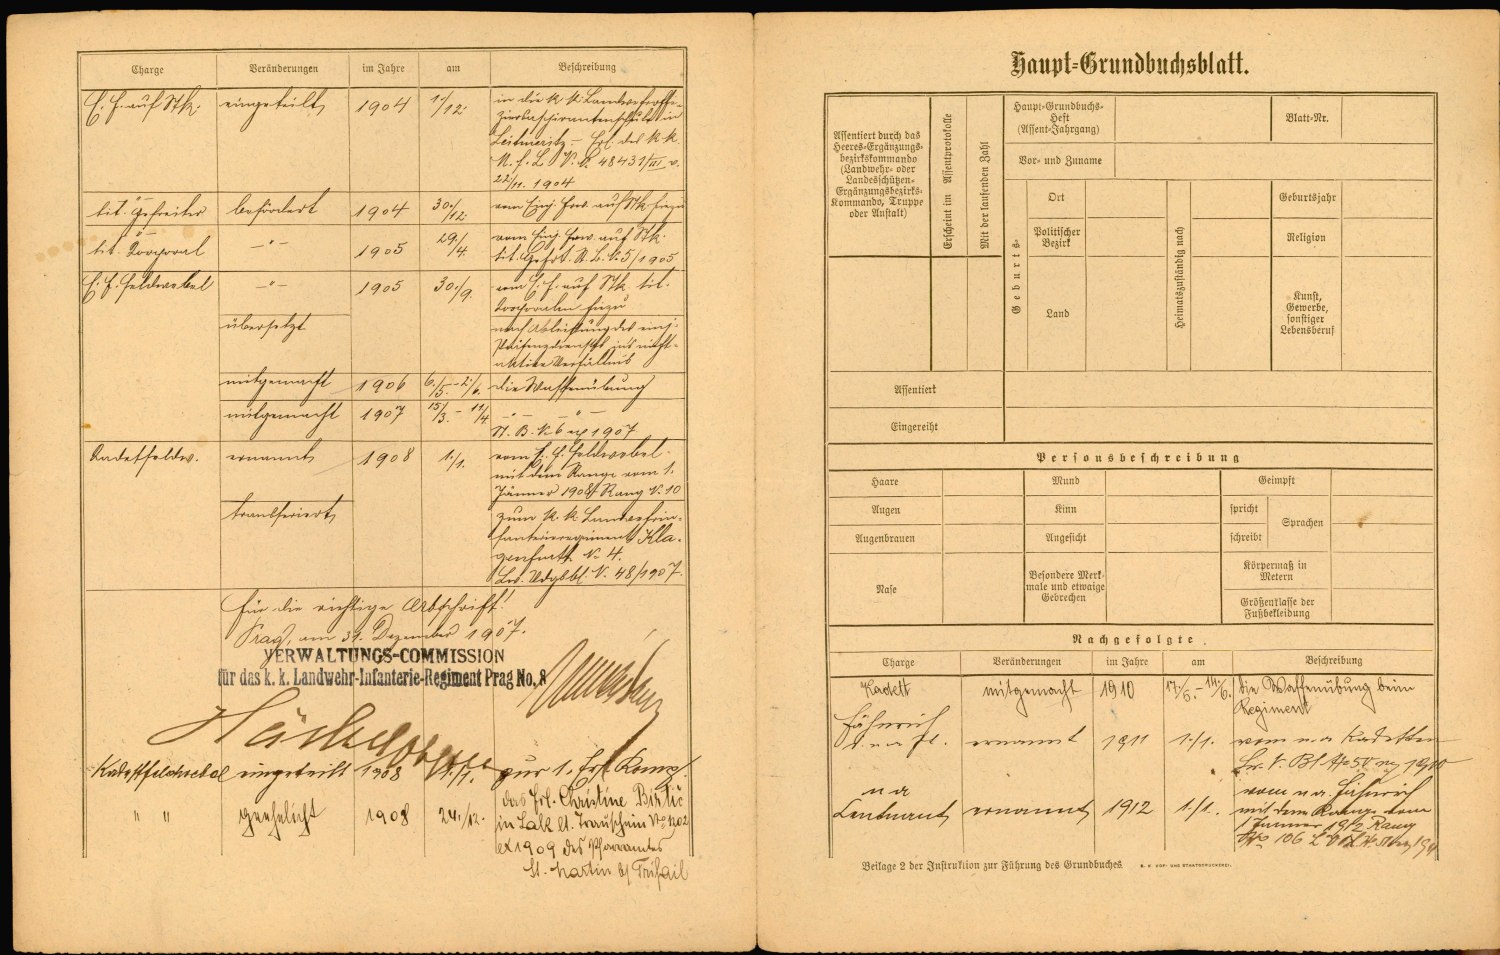 Charge Veränderungen im Jahre am Beschreibung
E. F. auf Stk. eingeteilt 1904 1./12. in die k. k. Landwehroffi-
in
Leitmeritz - Erl. des k. k.
M. f. L. V. 48431/III v.
22./11. 1904
tit. Gefreiter befördert 1904 30./12. vom Einj. Frw. auf Stk. hiezu
tit. Korporal -"- 1905 29./4. vom Einj. Frw. auf Stk.
tit. Gefrt. R. B. N. 5/1905
E. F. Feldwebel -"- 1905 30./9. vom E. F. auf Stk. tit.
Korporalen hiezu
übersetzt nach Ableistung des einj.
Präsenzdienstes ins nicht-
aktive Verhältnis
mitgemacht 1906 6./5. - 2./6. die Waffenübung
mitgemacht 1907 15/3. - 11/4. -"- -"-
R. B. N. 6 1907
Kadetfeldw. ernannt 1908 1./1. vom E. F. Feldwebel
mit dem Range vom 1.
Jänner 1908 Rang N. 10
transferiert zum k. k. Landwehrin-
fanterieregiment Kla-
genfurt N. 4.
Lw. Vdgsbl. N. 48/1907.
Für die richtige Abschrift!
Prag, am 31. Dezember 1907.
VERWALTUNGS-COMMISSION
für das k. k. Landwehr-Infanterie-Regiment Prag No. 8
Kadettfeldwebel eingeteilt 1908 1./1. zur 1. Ers. Komp.
" " geehelicht 1908 24./12. das Frl. Christine
in lt. Trauschein No 1202
ex 1909 des Pfarramtes
St. Martin b/ Trifail
Haupt-Grundbuchsblatt.
Assentiert durch das
Heeres-Ergänzungs-
bezirkskommando
(Landwehr- oder
Landesschützen-
Ergänzungsbezirks-
Kommando, Truppe
oder Anstalt)
Erscheint im Assentprotokolle
Mit der laufenden Zahl
Haupt-Grundbuchs-
Heft
(Assent-Jahrgang)
Blatt-Nr.
Vor- und Zuname
Geburts-
Ort
Politischer
Bezirk
Land
Heimatszuständig nach
Geburtsjahr
Religion
Kunst,
Gewerbe,
sonstiger
Lebensberuf
Assentiert
Eingereiht
Personsbeschreibung
Haare Mund Geimpft
Augen Kinn spricht Sprachen
Augenbrauen Angesicht schreibt
Nase Besondere Merk-
male und etwaige
Gebrechen
Körpermaß in
Metern
Größenklasse der
Fußbekleidung
Nachgefolgte
Charge Veränderungen im Jahre am Beschreibung
Kadett mitgemacht 1910 17./5. - 14./6. die Waffenübung beim
Regiment
Fähnrich
ernannt 1911 1./1. vom n. a. Kadetten
Lw. V. Bl. No 50 1910
n a
Leutnant ernannt 1912 1./1. vom n a. Fähnrich
mit dem Range vom
1 Jänner 1912 Rang
No 106
Beilage 2 der Instruktion zur Führung des Grundbuches K. K. HOF- UND STAATSDRUCKEREI.